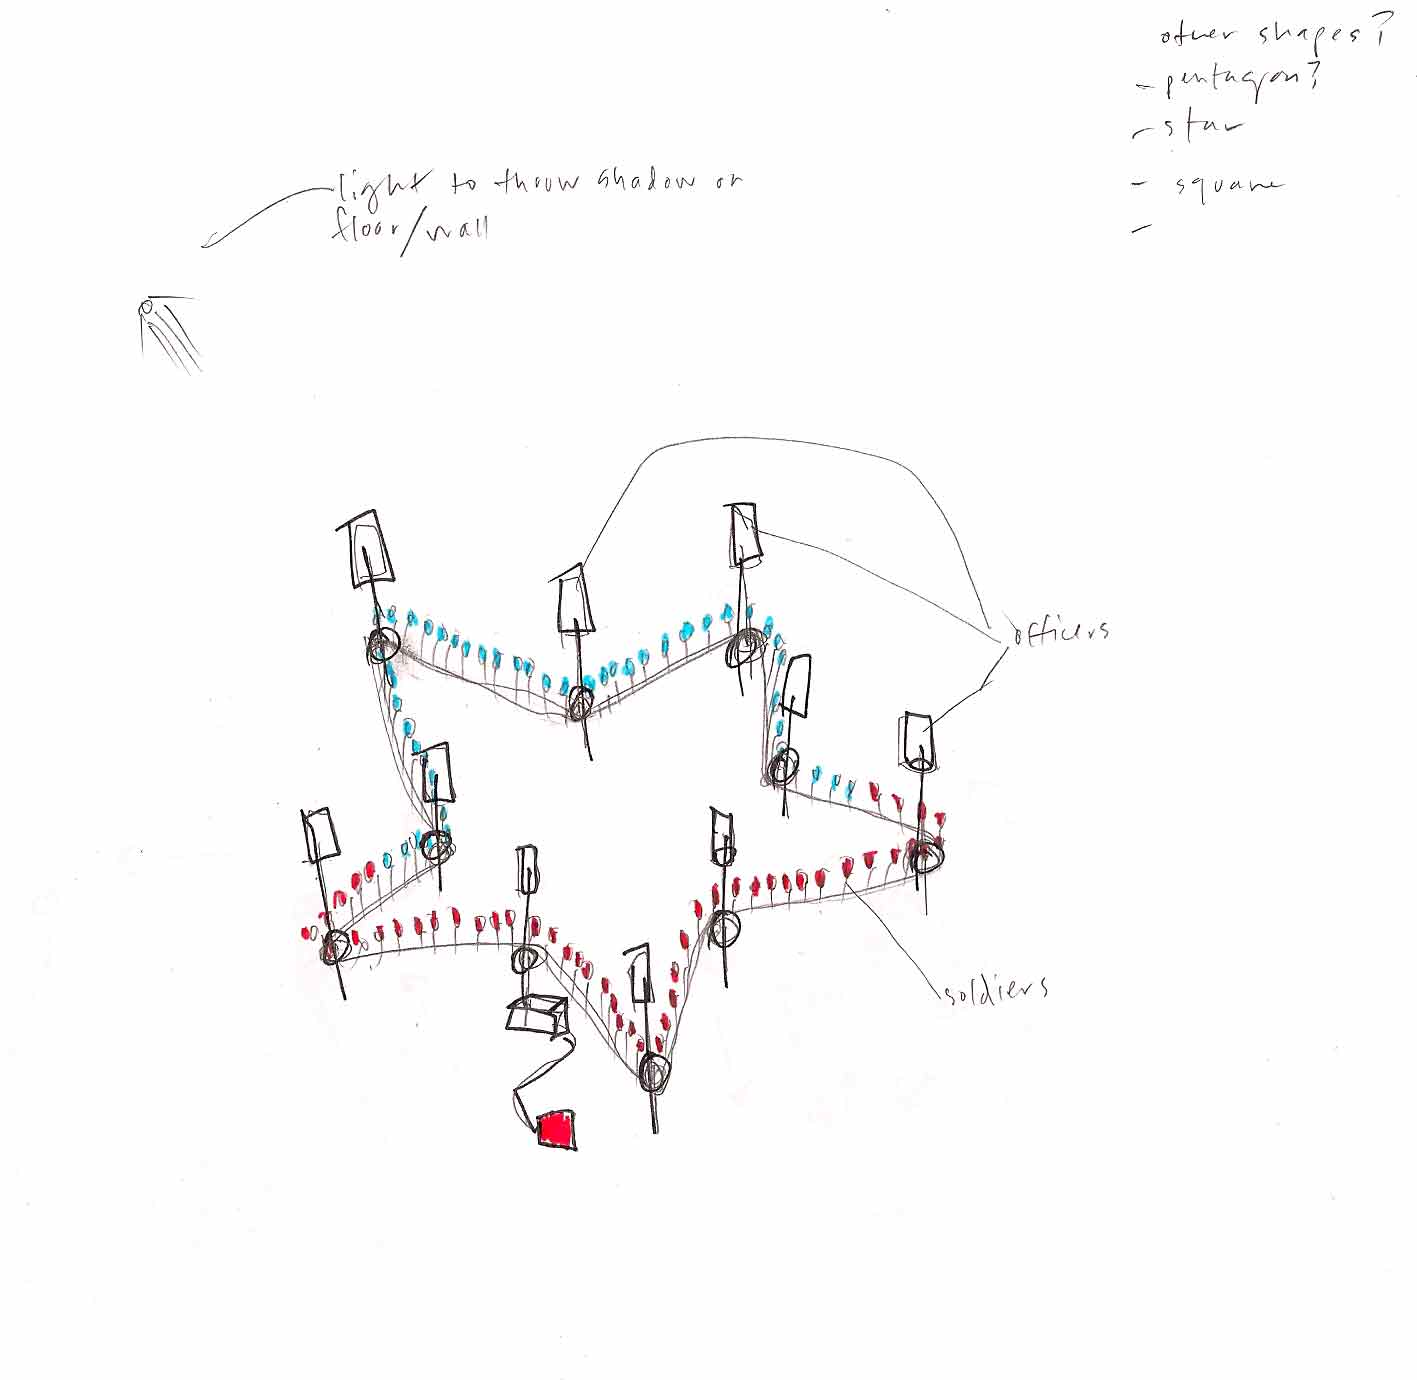 other shapes?
- pentagon?
- star
- square
-
light to throw shadow on
floor/wall
officers
soldiers